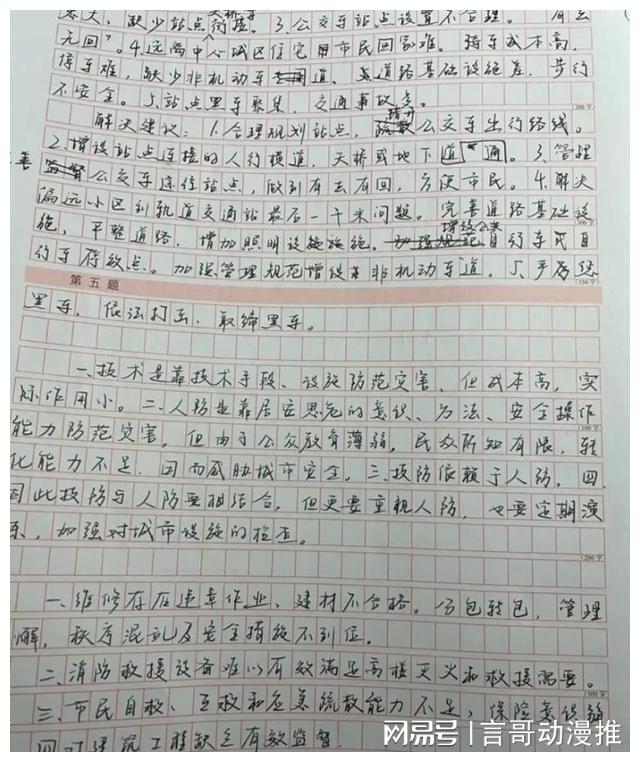 缺少站点衔接。3.公交车站点设置不合理。"有去
无回"。4.远离中心城区住宅用市民回家难。骑车成本高,
停车难,缺少非机动车道。道路基础设施差,步行
不安全。5.站点黑车聚集,交通事故多。
(200字)
解决建议:1.合理规划站点,公交车出行路线。
2.增设站点连接的人行横道,天桥或地下通道。3.管理
公交车途径站点,做到有去有回,方便市民。4.解决
偏远小区到轨道交通站最后一千米问题。完善道路基础设
施,平整道路,增加照明设施。自行车
行车存放点。加强管理规范增设非机动车道,5.严厉
(350字)
第五题
黑车,依法打击,取缔黑车。
一、技术是靠技术手段、设施防范灾害,但成本高,实
际作用小。二、人防是靠居安思危的意识、方法、安全操作
(100字)
能力防范灾害,但由于公众教育薄弱,民众所知有限,转
化能力不足,因而威胁城市安全。三、技防依赖于人防。四、
因此技防与人防要相结合,但更要重视人防,也要定期演
练,加强对城市设施的检查。
(200字)
一、维修存在违章作业、建材不合格。分包转包,管理
解,秩序混乱及安全措施不到位。
二、消防救援设备难以有效满足高楼灭火和救援需要。
(300字)
三、市民自救、互救和应急疏散能力不足,保险意识弱
四、对建筑工程缺乏有效监督
网易号 | 言哥动漫推